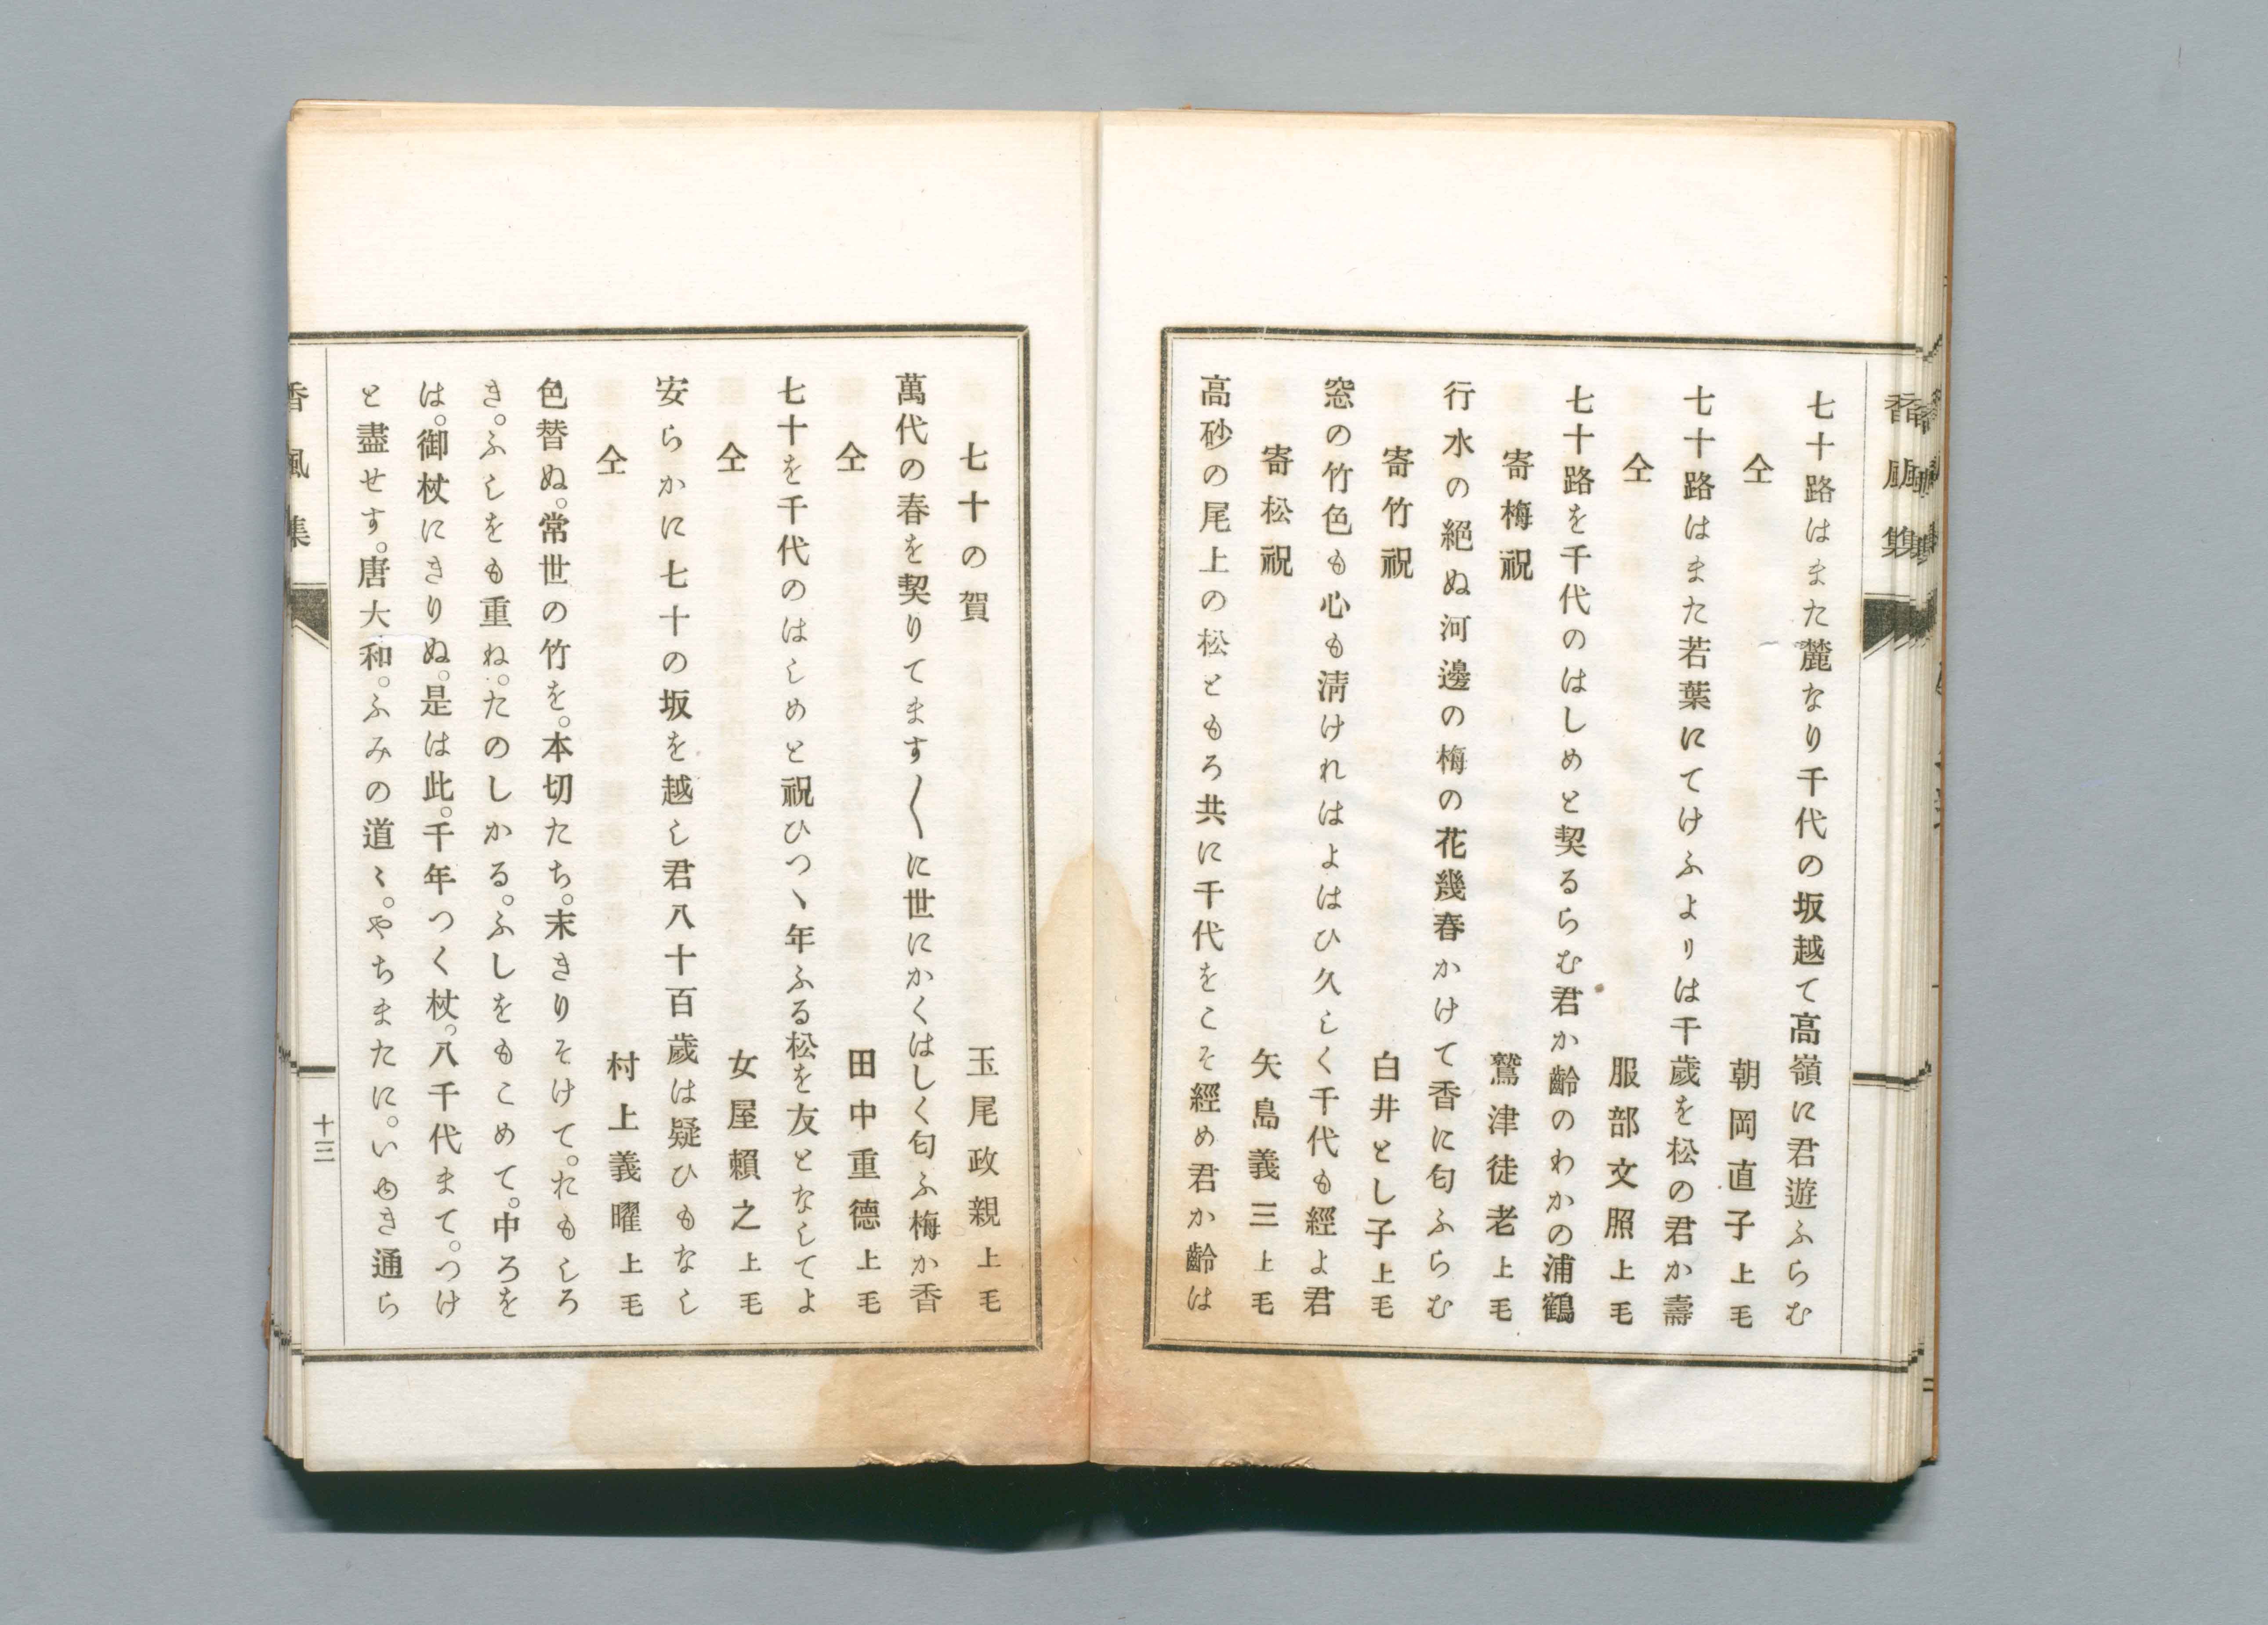 香風集
七十路はまた麓なり千代の坂越て高嶺に君遊ふらむ
仝 朝岡直子上毛
七十路はまた若葉にてけふよりは千歲を松の君か壽
仝 服部文照上毛
七十路を千代のはしめと契るらむ君か齡のわかの浦鶴
寄梅祝 鷲津徒老上毛
行水の絕ぬ河邊の梅の花幾春かけて香に匂ふらむ
寄竹祝 白井とし子上毛
窓の竹色も心も淸けれはよはひ久しく千代も經よ君
寄松祝 矢島義三上毛
高砂の尾上の松ともろ共に千代をこそ經め君か齡は
七十の賀 玉尾政親上毛
萬代の春を契りてます〱に世にかくはしく匂ふ梅か香
仝 田中重德上毛
七十を千代のはしめと祝ひつヽ年ふる松を友となしてよ
仝 女屋賴之上毛
安らかに七十の坂を越し君八十百歲は疑ひもなし
仝 村上義曜上毛
色替ぬ。常世の竹を。本切たち。末きりそけて。れもしろ
き。ふしをも重ね。たのしかる。ふしをもこめて。中ろを
は。御杖にきりぬ。是は此。千年つく杖。八千代まて。つけ
と盡せす。唐大和。ふみの道〻。やちまたに。いゆき通ら
香風集
十三